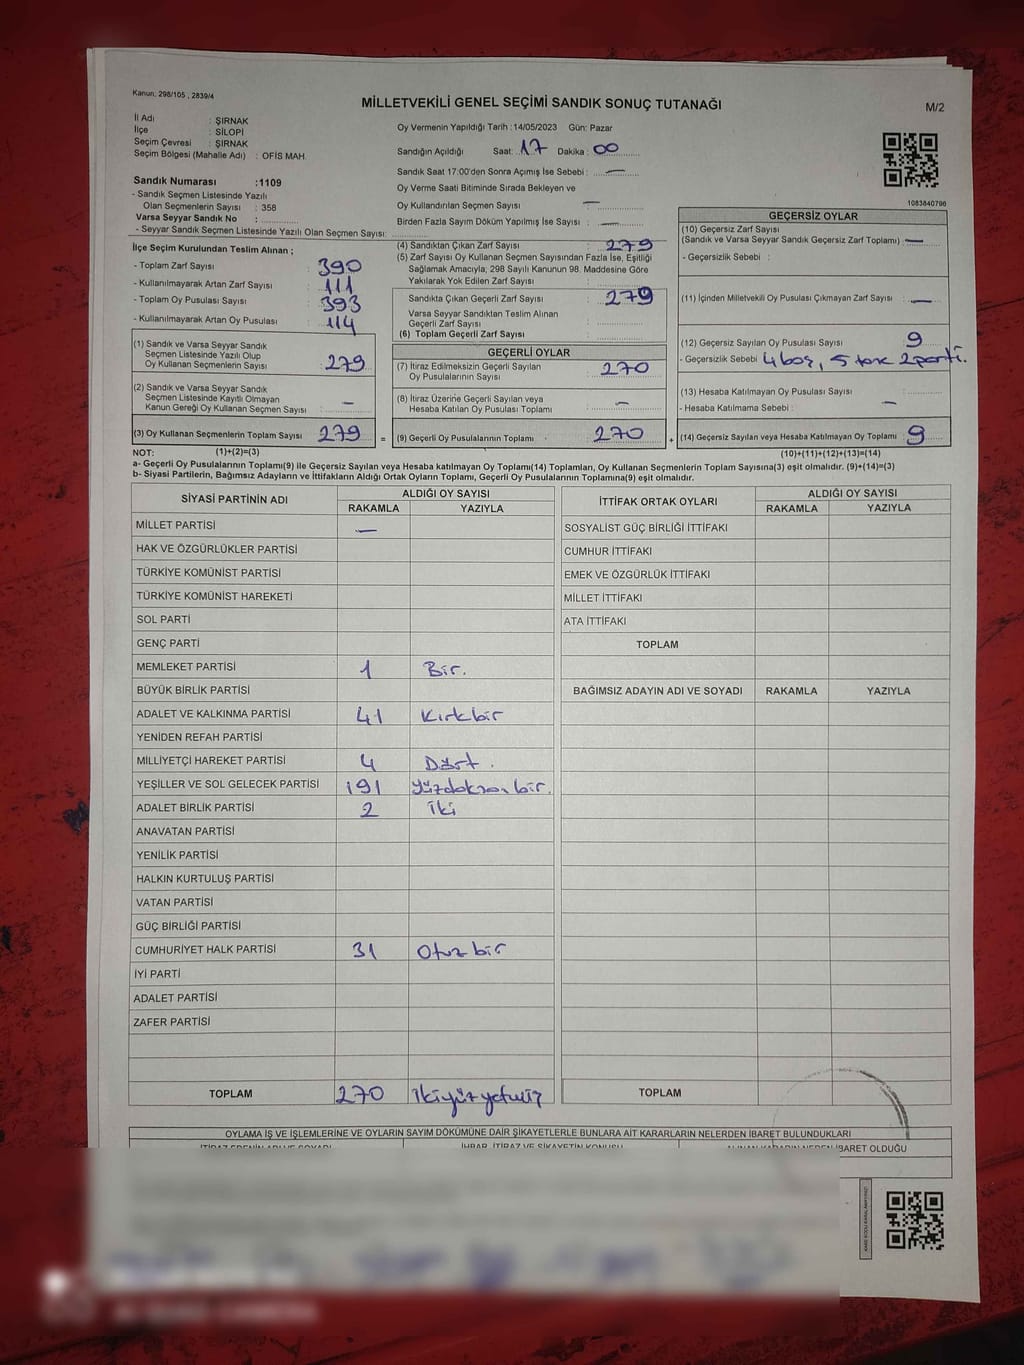 Kanun. 298/105 , 2839/4
MİLLETVEKİLİ GENEL SEÇİMİ SANDIK SONUÇ TUTANAĞI
M/2
İl Adı : ŞIRNAK
İlçe : SİLOPİ
Seçim Çevresi : ŞIRNAK
Seçim Bölgesi (Mahalle Adı) : OFİS MAH.
Sandık Numarası :1109
- Sandık Seçmen Listesinde Yazılı
Olan Seçmenlerin Sayısı : 358
Varsa Seyyar Sandık No :
- Seyyar Sandık Seçmen Listesinde Yazılı Olan Seçmen Sayısı:
Oy Vermenin Yapıldığı Tarih :14/05/2023 Gün: Pazar
Sandığın Açıldığı Saat: 17 Dakika: 00
Sandık Saat 17:00'den Sonra Açımış İse Sebebi : —
Oy Verme Saati Bitiminde Sırada Bekleyen ve
Oy Kullandırılan Seçmen Sayısı —
Birden Fazla Sayım Döküm Yapılmış İse Sayısı : —
1083840796
İlçe Seçim Kurulundan Teslim Alınan ;
- Toplam Zarf Sayısı : 390
- Kullanılmayarak Artan Zarf Sayısı : 111
- Toplam Oy Pusulası Sayısı : 393
- Kullanılmayarak Artan Oy Pusulası : 114
(1) Sandık ve Varsa Seyyar Sandık
Seçmen Listesinde Yazılı Olup
Oy Kullanan Seçmenlerin Sayısı : 279
(2) Sandık ve Varsa Seyyar Sandık
Seçmen Listesinde Kayıtlı Olmayan
Kanun Gereği Oy Kullanan Seçmen Sayısı : —
(3) Oy Kullanan Seçmenlerin Toplam Sayısı : 279 =
(4) Sandıktan Çıkan Zarf Sayısı : 279
(5) Zarf Sayısı Oy Kullanan Seçmen Sayısından Fazla İse, Eşitliği
Sağlamak Amacıyla; 298 Sayılı Kanunun 98. Maddesine Göre
Yakılarak Yok Edilen Zarf Sayısı :
Sandıkta Çıkan Geçerli Zarf Sayısı : 279
Varsa Seyyar Sandıktan Teslim Alınan
Geçerli Zarf Sayısı :
(6) Toplam Geçerli Zarf Sayısı :
GEÇERLİ OYLAR
(7) İtiraz Edilmeksizin Geçerli Sayılan
Oy Pusulalarının Sayısı : 270
(8) İtiraz Üzerine Geçerli Sayılan veya
Hesaba Katılan Oy Pusulası Toplamı : —
(9) Geçerli Oy Pusulalarının Toplamı : 270 +
GEÇERSİZ OYLAR
(10) Geçersiz Zarf Sayısı
(Sandık ve Varsa Seyyar Sandık Geçersiz Zarf Toplamı) —
- Geçersizlik Sebebi :
(11) İçinden Milletvekili Oy Pusulası Çıkmayan Zarf Sayısı : —
(12) Geçersiz Sayılan Oy Pusulası Sayısı : 9
- Geçersizlik Sebebi 4 boş, 5 2 parti.
(13) Hesaba Katılmayan Oy Pusulası Sayısı :
- Hesaba Katılmama Sebebi : —
(14) Geçersiz Sayılan veya Hesaba Katılmayan Oy Toplamı : 9
NOT: (1)+(2)=(3) (10)+(11)+(12)+(13)=(14)
a- Geçerli Oy Pusulalarının Toplamı(9) ile Geçersiz Sayılan veya Hesaba katılmayan Oy Toplamı(14) Toplamları, Oy Kullanan Seçmenlerin Toplam Sayısına(3) eşit olmalıdır. (9)+(14)=(3)
b- Siyasi Partilerin, Bağımsız Adayların ve İttifakların Aldığı Ortak Oyların Toplamı, Geçerli Oy Pusulalarının Toplamına(9) eşit olmalıdır.
SİYASİ PARTİNİN ADI ALDIĞI OY SAYISI
RAKAMLA YAZIYLA
MİLLET PARTİSİ —
HAK VE ÖZGÜRLÜKLER PARTİSİ
TÜRKİYE KOMÜNİST PARTİSİ
TÜRKİYE KOMÜNİST HAREKETİ
SOL PARTİ
GENÇ PARTİ
MEMLEKET PARTİSİ 1 Bir.
BÜYÜK BİRLİK PARTİSİ
ADALET VE KALKINMA PARTİSİ 41 Kırkbir
YENİDEN REFAH PARTİSİ
MİLLİYETÇİ HAREKET PARTİSİ 4 Dört.
YEŞİLLER VE SOL GELECEK PARTİSİ 191 Yüzdoksanbir.
ADALET BİRLİK PARTİSİ 2 İki
ANAVATAN PARTİSİ
YENİLİK PARTİSİ
HALKIN KURTULUŞ PARTİSİ
VATAN PARTİSİ
GÜÇ BİRLİĞİ PARTİSİ
CUMHURİYET HALK PARTİSİ 31 Otuzbir
İYİ PARTİ
ADALET PARTİSİ
ZAFER PARTİSİ
TOPLAM 270 İkiyüzyetmiş
İTTİFAK ORTAK OYLARI ALDIĞI OY SAYISI
RAKAMLA YAZIYLA
SOSYALİST GÜÇ BİRLİĞİ İTTİFAKI
CUMHUR İTTİFAKI
EMEK VE ÖZGÜRLÜK İTTİFAKI
MİLLET İTTİFAKI
ATA İTTİFAKI
TOPLAM
BAĞIMSIZ ADAYIN ADI VE SOYADI RAKAMLA YAZIYLA
TOPLAM
OYLAMA İŞ VE İŞLEMLERİNE VE OYLARIN SAYIM DÖKÜMÜNE DAİR ŞİKAYETLERLE BUNLARA AİT KARARLARIN NELERDEN İBARET BULUNDUKLARI
İHBAR, İTİRAZ VE ŞİKAYETİN KONUSU
İBARET OLDUĞU